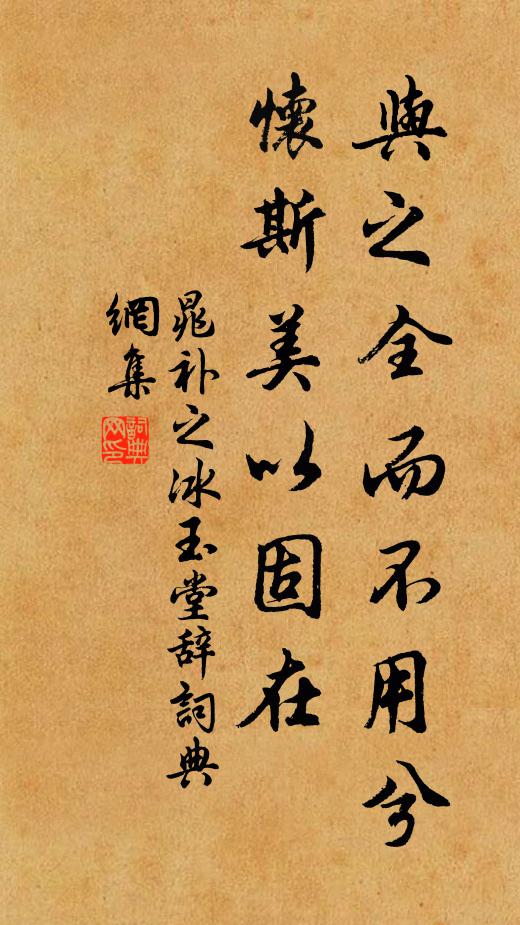 與之全而不用兮
懷斯美以固在
晁补之冰玉堂辞詞典
網集
詞典
网印